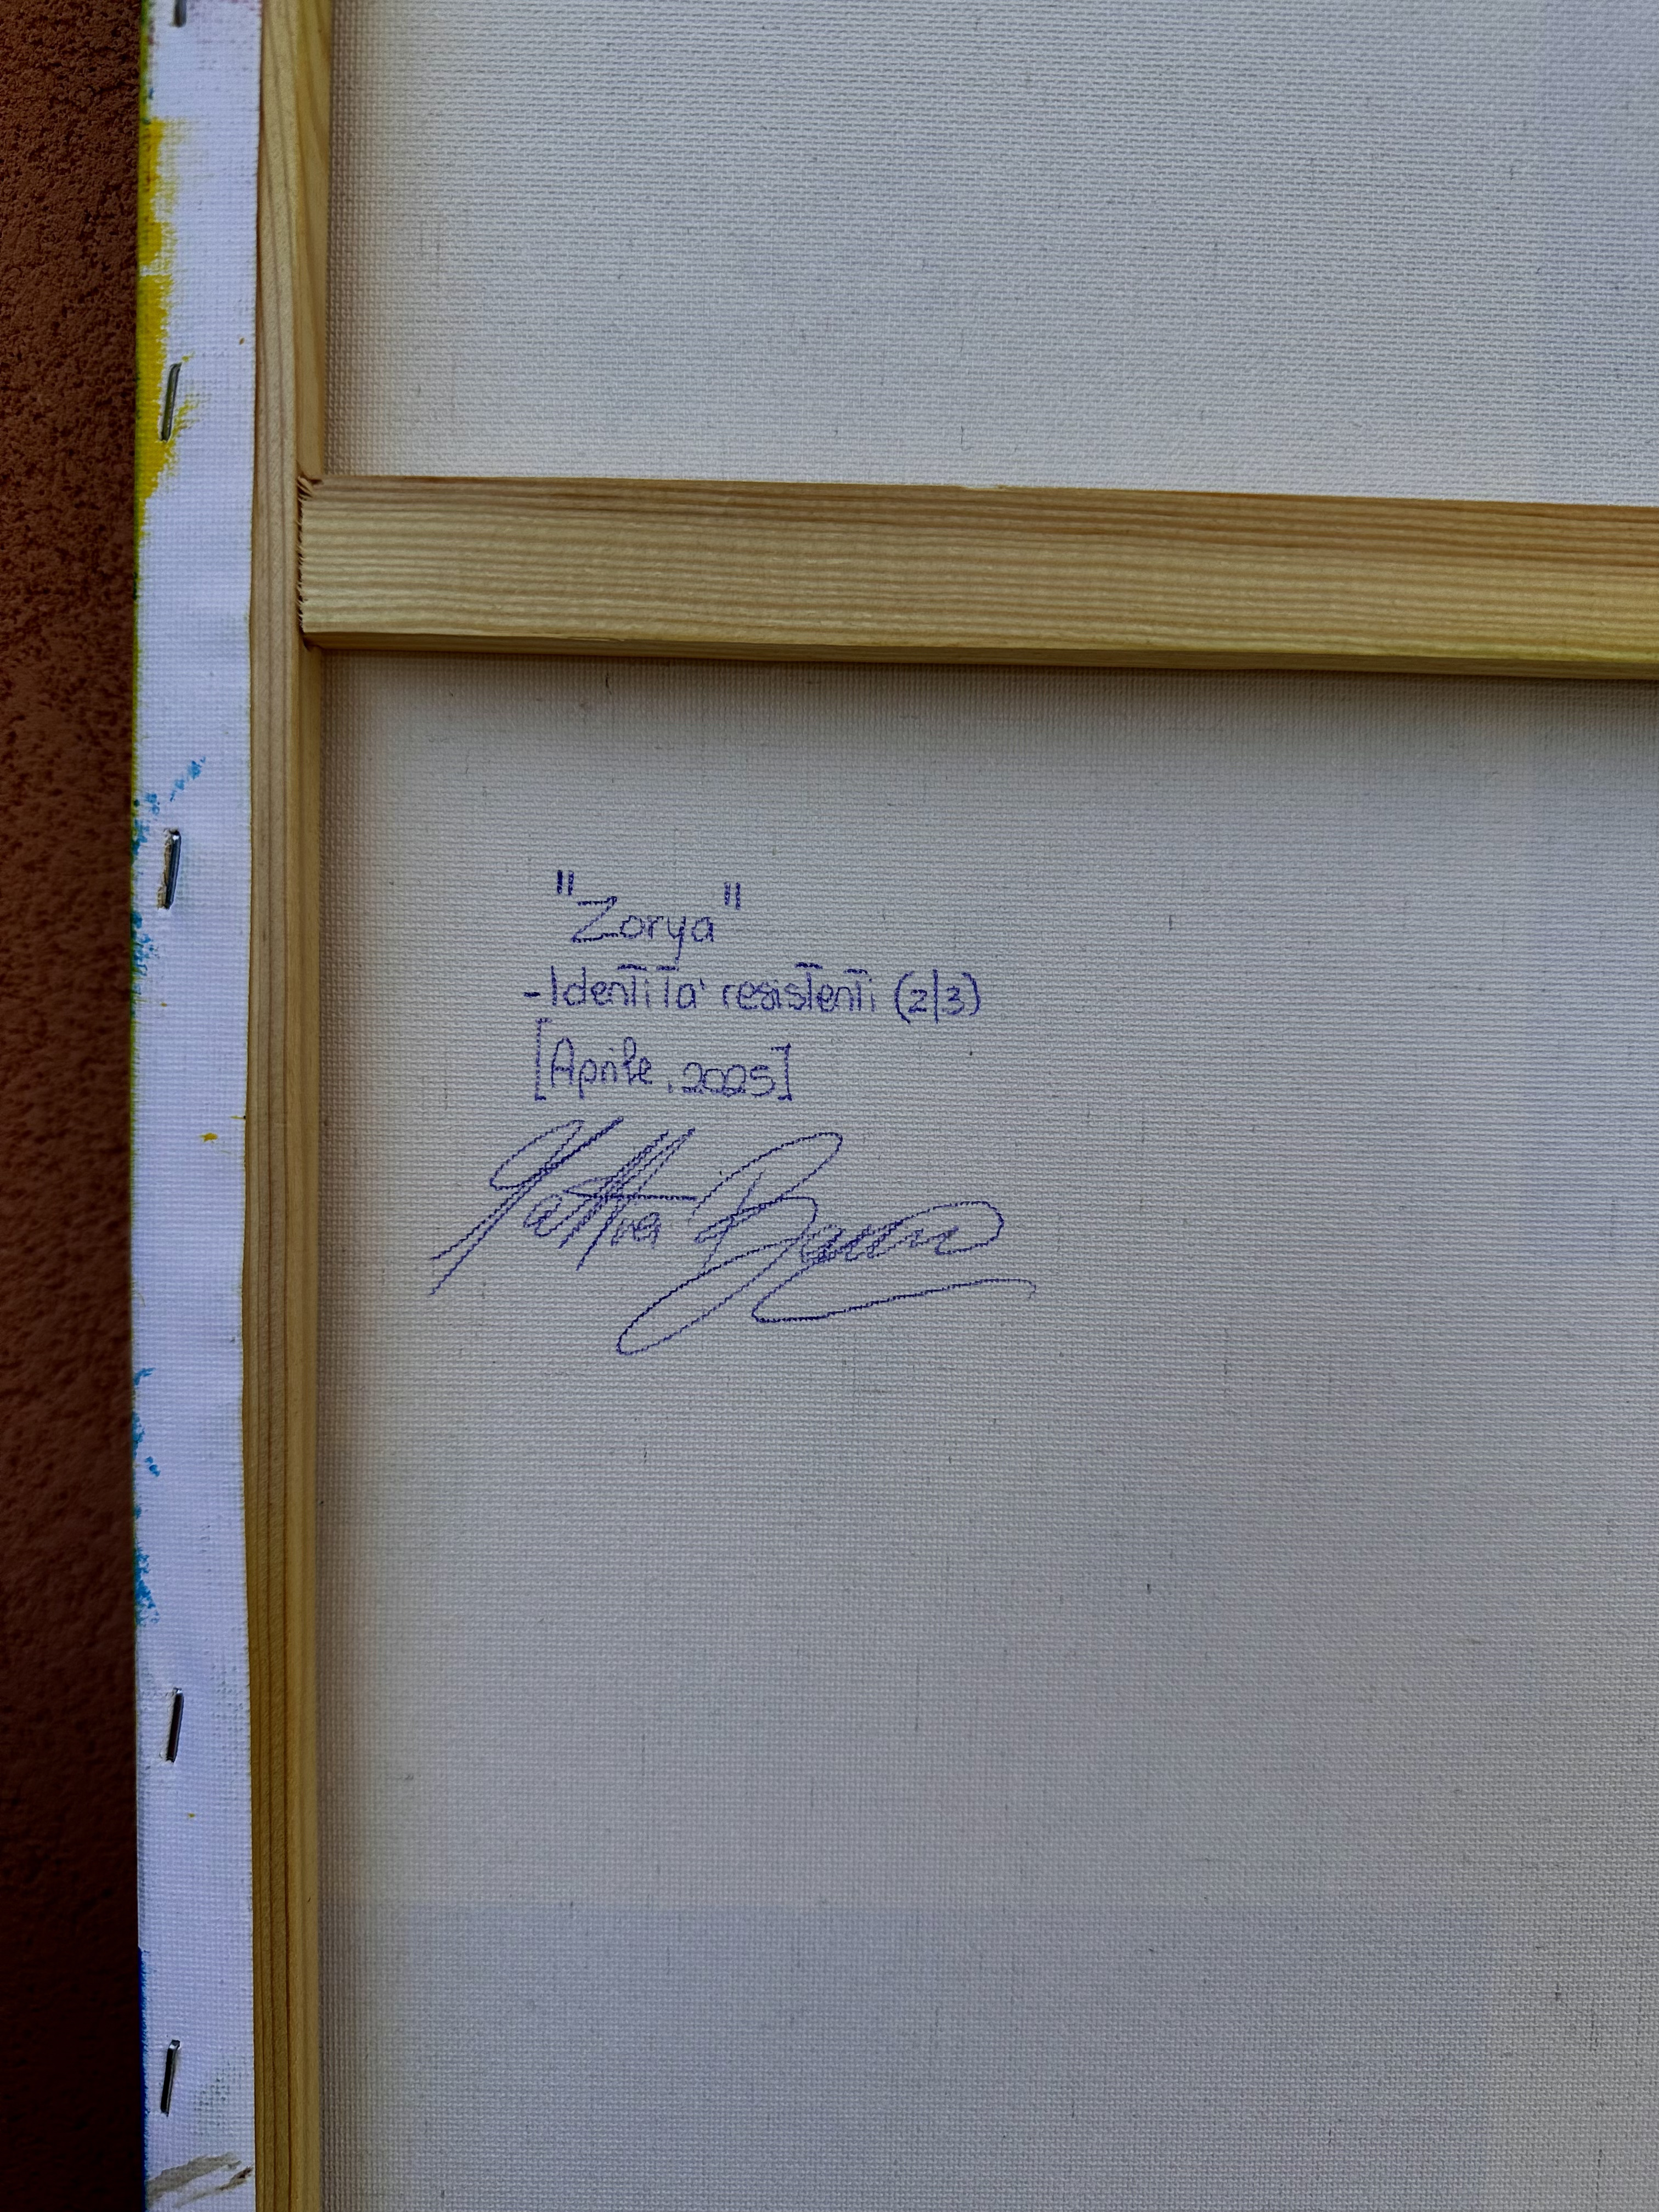 "Zorya"
-Identità resistenti (2/3)
[Aprile, 2025]